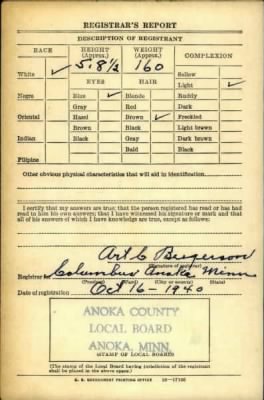 REGISTRAR'S REPORT
DESCRIPTION OF REGISTRANT
RACE HEIGHT (Approx.) WEIGHT (Approx.) COMPLEXION
White ✓ 5.8 1/2 160 Sallow
EYES HAIR Light ✓
Negro Blue ✓ Blonde Ruddy
Gray Red Dark
Oriental Hazel Brown ✓ Freckled
Brown Black Light brown
Indian Black Gray Dark brown
Bald Black
Filipino
Other obvious physical characteristics that will aid in identification
I certify that my answers are true; that the person registered has read or has had
read to him his own answers; that I have witnessed his signature or mark and that
all of his answers of which I have knowledge are true, except as follows:
Art C Bergerson
(Signature of registrar)
Registrar for Columbus Anoka Minn
(Precinct) (Ward) (City or county) (State)
Date of registration Oct 16 - 1940
ANOKA COUNTY
LOCAL BOARD
ANOKA, MINN.
(STAMP OF LOCAL BOARD)
(The stamp of the Local Board having jurisdiction of the registrant
shall be placed in the above space.)
U. S. GOVERNMENT PRINTING OFFICE 16-17105